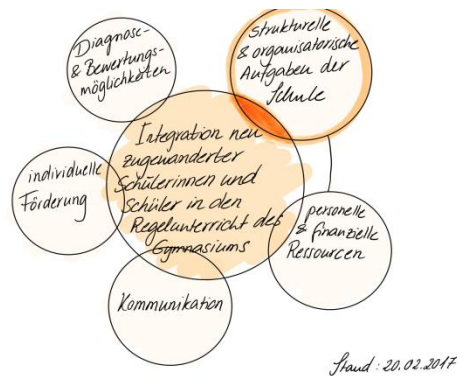 Diagnose-
& Bewertungs-
möglichkeiten
Strukturelle
& organisatorische
Aufgaben der
Schule
Integration neu
zugewanderter
Schülerinnen und
Schüler in den
Regelunterricht des
Gymnasiums
individuelle
Förderung
personelle
& finanzielle
Ressourcen
Kommunikation
Stand: 20.02.2017